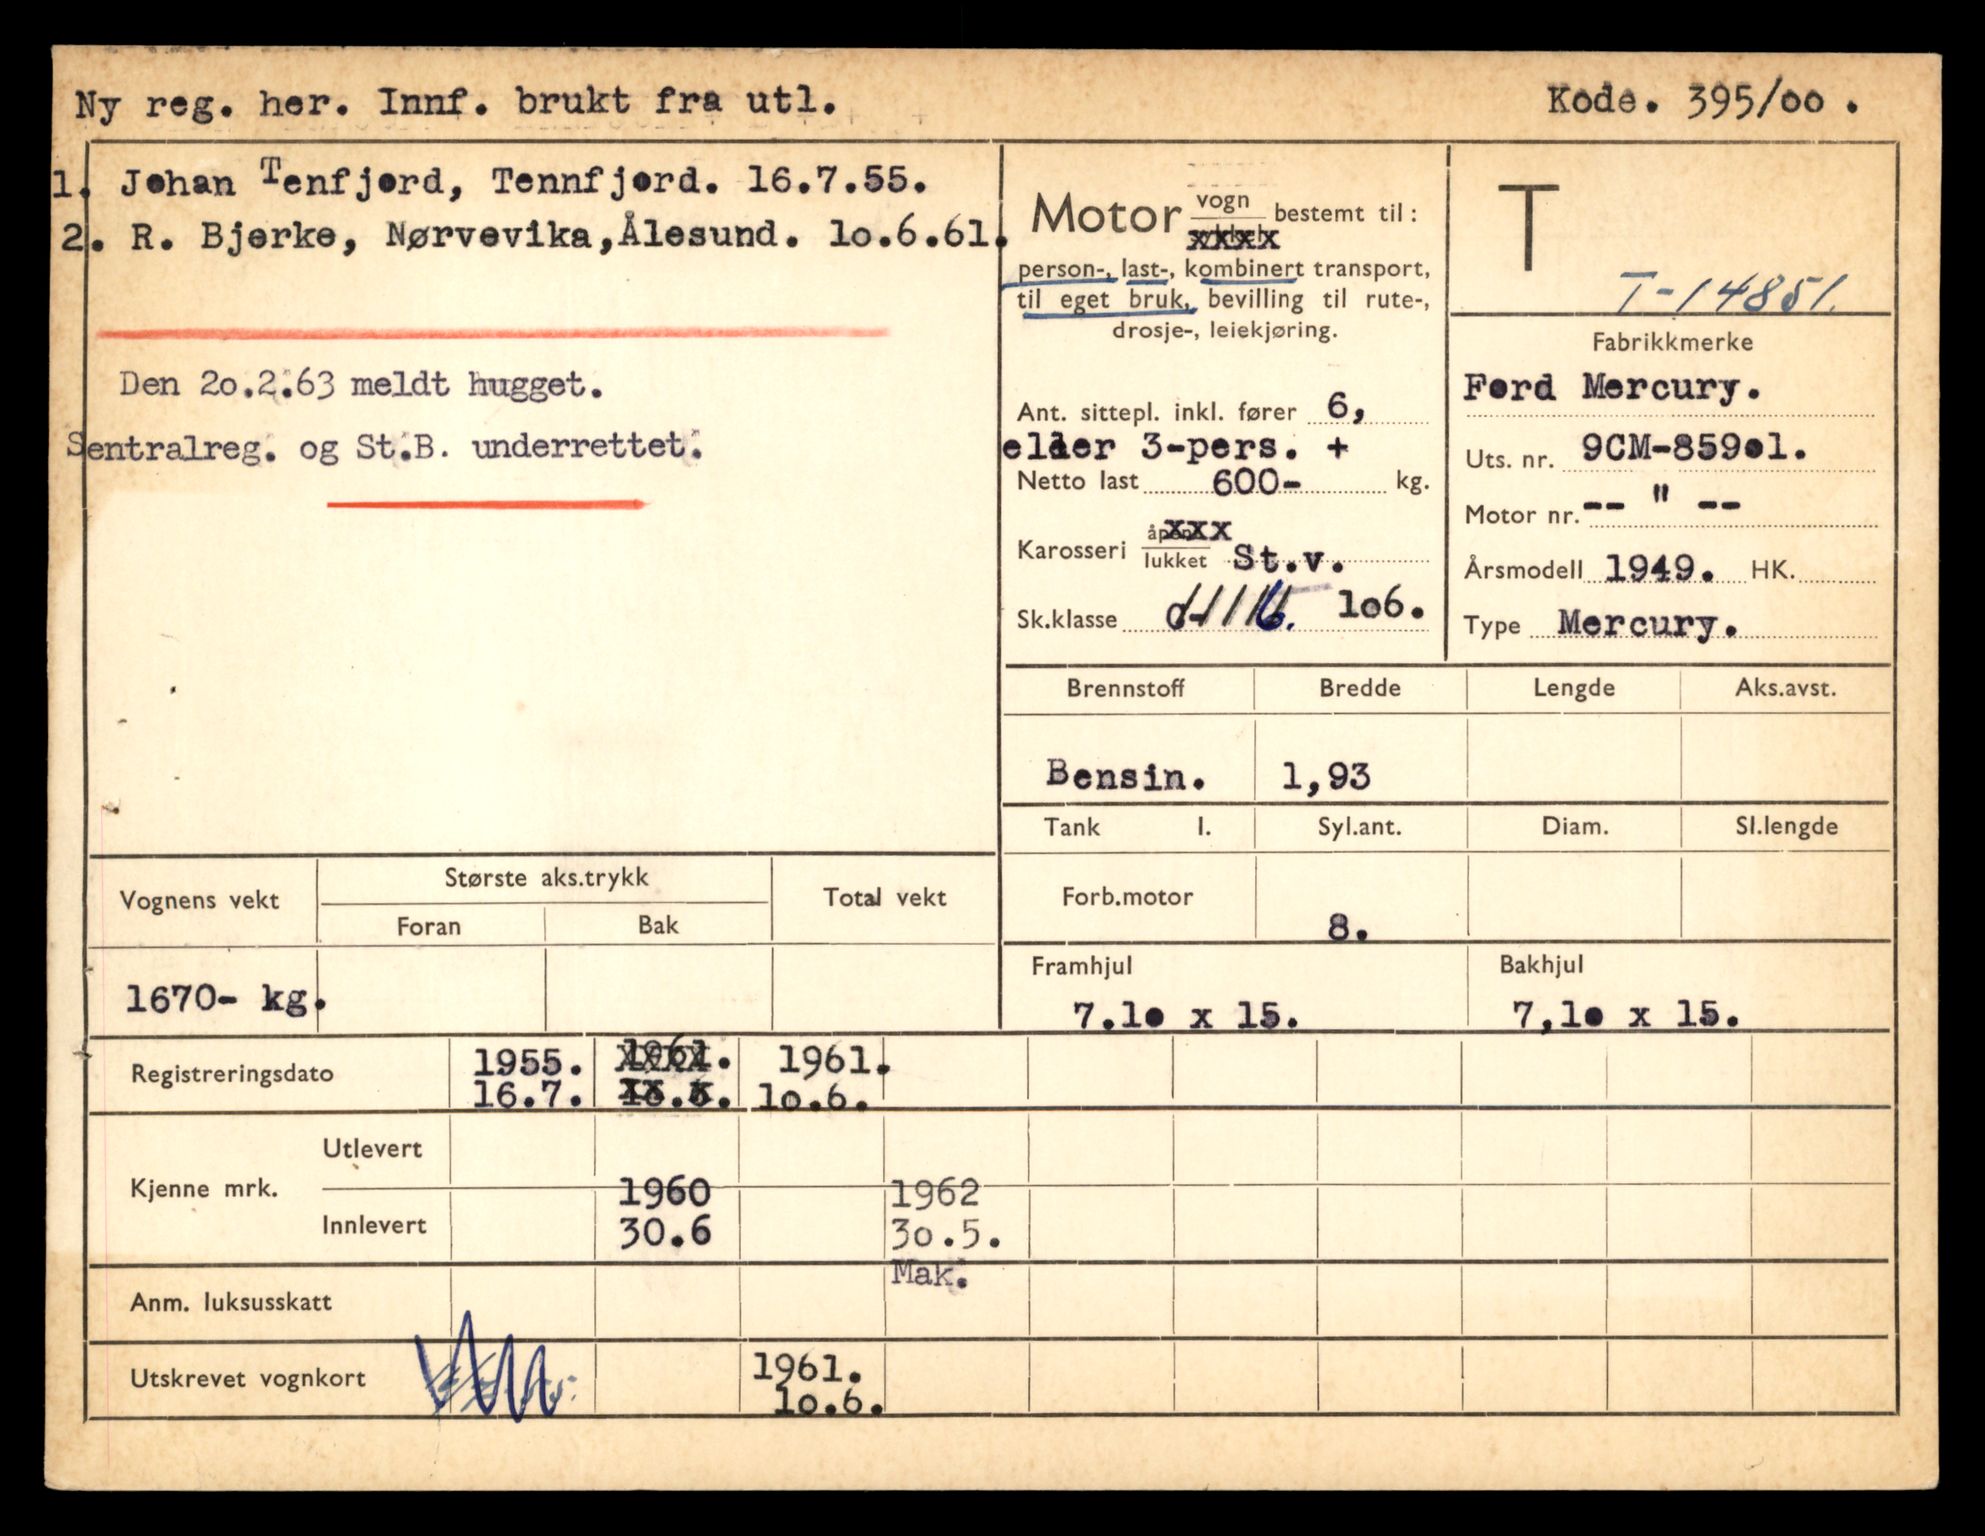 Ny reg. her. Innf. brukt fra utl.
Kode. 395/oo .
1. Johan Tenfjord, Tennfjord. 16.7.55.
2. R. Bjerke, Nørvevika,Ålesund. 1o.6.61.
Den 2o.2.63 meldt hugget.
Sentralreg. og St.B. underrettet.
Motor vogn bestemt til:
person-, last-, kombinert transport,
til eget bruk, bevilling til rute-,
drosje-, leiekjøring.
Ant. sittepl. inkl. fører 6,
eller 3-pers. +
Netto last 600- kg.
Karosseri lukket St.v.
Sk.klasse 1o6.
T
T-14851.
Fabrikkmerke
Ford Mercury.
Uts. nr. 9CM-859o1.
Motor nr. -- " --
Årsmodell 1949. HK.
Type Mercury.
Brennstoff Bredde Lengde Aks.avst.
Bensin. 1,93
Tank l. Syl.ant. Diam. Sl.lengde
Forb.motor 8.
Framhjul Bakhjul
7.1o x 15. 7,1o x 15.
Vognens vekt Største aks.trykk Total vekt
Foran Bak
1670- kg.
Registreringsdato 1955. 1961. 1961.
16.7. 1o.6.
Kjenne mrk. Utlevert
Innlevert
1960 1962
30.6 3o.5.
Mak.
Anm. luksusskatt
Utskrevet vognkort 1961.
1o.6.